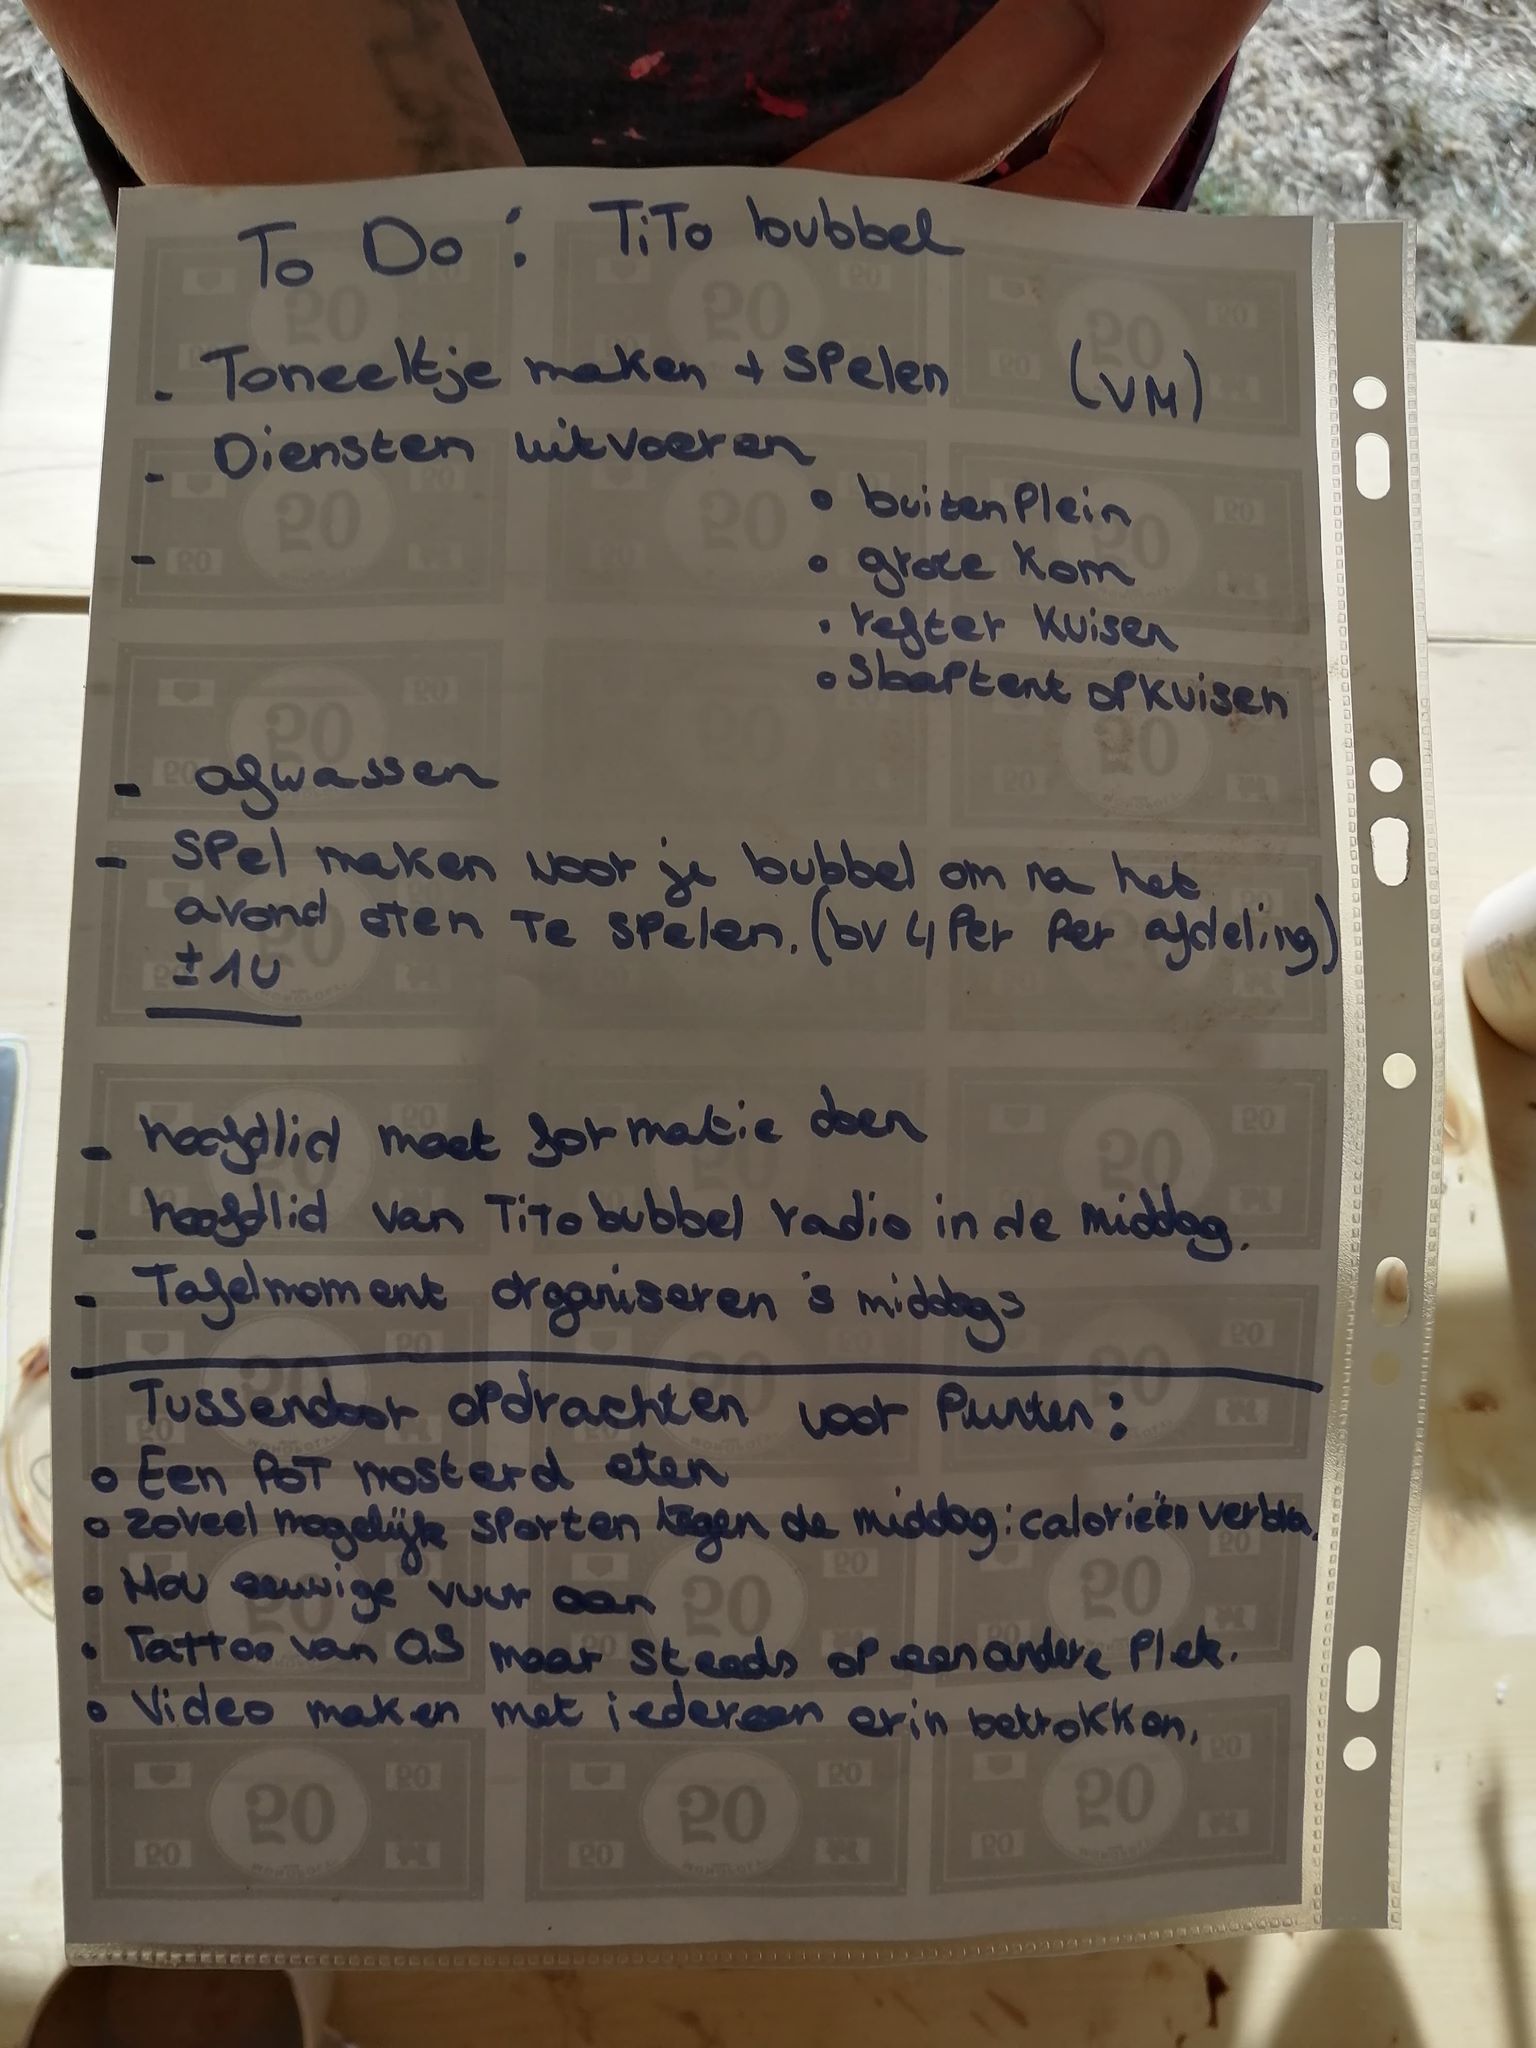 To Do : TiTo bubbel
- Toneeltje maken + spelen (VM)
- Diensten uitvoeren
• buitenplein
-
• grote kom
• refter kuisen
• Slaaptent opkuisen
- afwassen
- Spel maken voor je bubbel om na het
avond eten te spelen. (bv 4 per per afdeling)
± 1U
- hoofdlid moet formatie doen
- hoofdlid van Tito bubbel radio in de middag.
- Tafelmoment organiseren 's middags
Tussendoor opdrachten voor Punten :
• Een POT mosterd eten
• zoveel mogelijk sporten tegen de middag : calorieën verbra.
• Hou eeuwige vuur aan
• Tattoo van maar steeds op een andere plek.
• Video maken met iedereen erin betrokken.
50
MONOPOLY